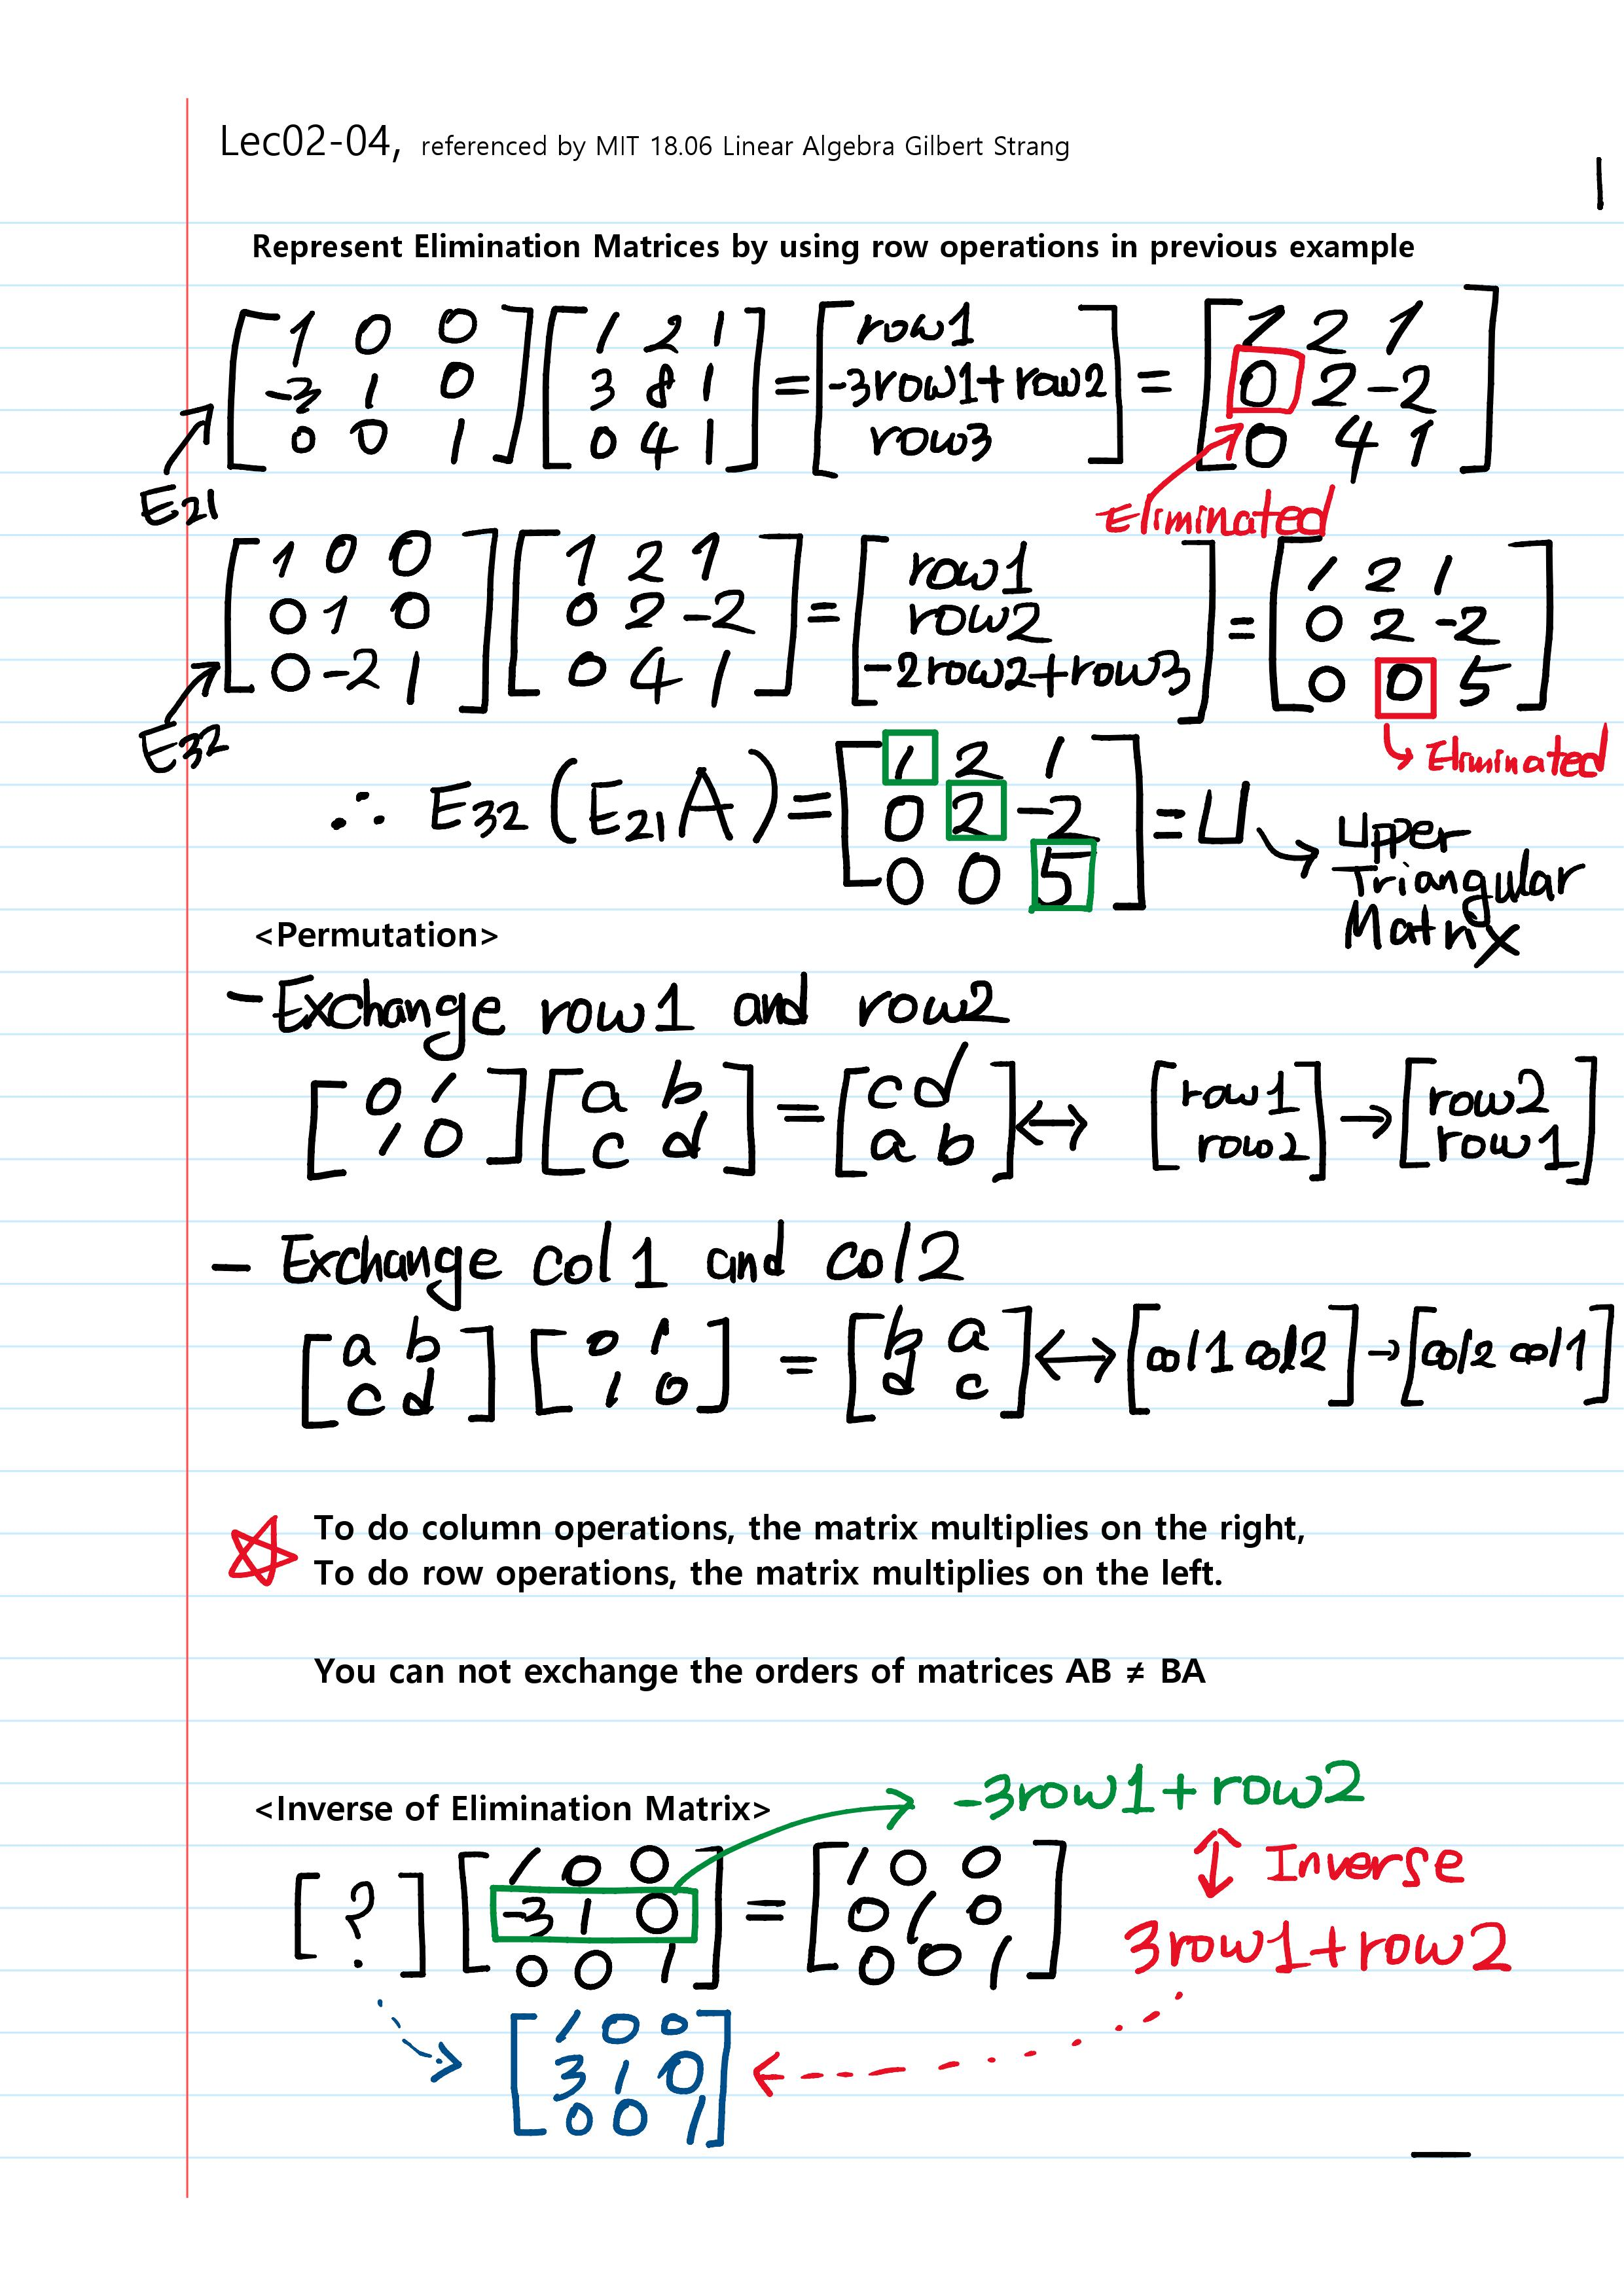 Lec02-04, referenced by MIT 18.06 Linear Algebra Gilbert Strang
Represent Elimination Matrices by using row operations in previous example
[1 0 0 [1 2 1 [row1 [1 2 1
-3 1 0 3 8 1 = -3row1+row2 = 0 2 -2
0 0 1] 0 4 1] row3] 0 4 1]
E21 Eliminated
[1 0 0 [1 2 1 [row1 [1 2 1
0 1 0 0 2 -2 = row2 = 0 2 -2
0 -2 1] 0 4 1] -2row2+row3] 0 0 5]
E32 Eliminated
[1 2 1
∴ E32 (E21 A) = 0 2 -2 = U → Upper
0 0 5] Triangular
Matrix
<Permutation>
- Exchange row1 and row2
[0 1 [a b = [c d ↔ [row1 → [row2
1 0] c d] a b] row2] row1]
- Exchange col1 and col2
[a b [0 1 = [b a ↔ [col1 col2] → [col2 col1]
c d] 1 0] d c]
☆ To do column operations, the matrix multiplies on the right,
To do row operations, the matrix multiplies on the left.
You can not exchange the orders of matrices AB ≠ BA
-3row1+row2
<Inverse of Elimination Matrix>
[1 0 0 [1 0 0 ↕ Inverse
[?] -3 1 0 = 0 1 0
0 0 1] 0 0 1] 3row1+row2
[1 0 0
3 1 0
0 0 1]